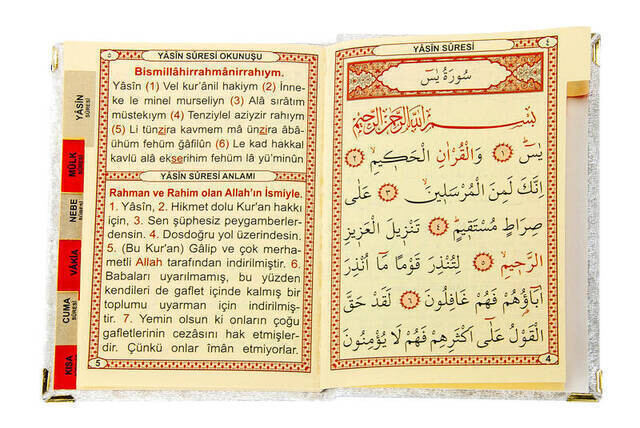 ٤
YÂSÎN SÛRESİ
سُورَةُ يٰسٓ
بِسْمِ اللّٰهِ الرَّحْمٰنِ الرَّحِيمِ
يٰسٓ ﴿١﴾ وَالْقُرْاٰنِ الْحَكِيمِ ﴿٢﴾
اِنَّكَ لَمِنَ الْمُرْسَلِينَ ﴿٣﴾ عَلٰى
صِرَاطٍ مُسْتَقِيمٍ ﴿٤﴾ تَنْزِيلَ الْعَزِيزِ
الرَّحِيمِ ﴿٥﴾ لِتُنْذِرَ قَوْمًا مَٓا اُنْذِرَ
اٰبَٓاؤُ۬هُمْ فَهُمْ غَافِلُونَ ﴿٦﴾ لَقَدْ حَقَّ
الْقَوْلُ عَلٰٓى اَكْثَرِهِمْ فَهُمْ لَا يُؤْمِنُونَ
4
٥
YÂSÎN SÛRESİ OKUNUŞU
Bismillâhirrahmânirrahıym.
Yâsîn (1) Vel kur'ânil hakiym (2) İnne-
ke le minel murseliyn (3) Alâ sırâtım
müstekıym (4) Tenziylel aziyzir rahıym
(5) Li tünzira kavmem mâ ünzira âbâ-
ühüm fehüm ğâfilûn (6) Le kad hakkal
kavlü alâ ekserihim fehüm lâ yü'minûn
YÂSÎN SÛRESİ ANLAMI
Rahman ve Rahim olan Allah'ın İsmiyle.
1. Yâsîn, 2. Hikmet dolu Kur'an hakkı
için, 3. Sen şüphesiz peygamberler-
densin. 4. Dosdoğru yol üzerindesin.
5. (Bu Kur'an) Gâlip ve çok merha-
metli Allah tarafından indirilmiştir. 6.
Babaları uyarılmamış, bu yüzden
kendileri de gaflet içinde kalmış bir
toplumu uyarman için indirilmiş-
tir. 7. Yemin olsun ki onların çoğu
gafletlerinin cezâsını hak etmişler-
dir. Çünkü onlar îmân etmiyorlar.
5
YÂSİN
SÛRESİ
MÜLK
SÛRESİ
NEBE
SÛRESİ
VÂKIA
CUMA
SÛRESİ
KISA